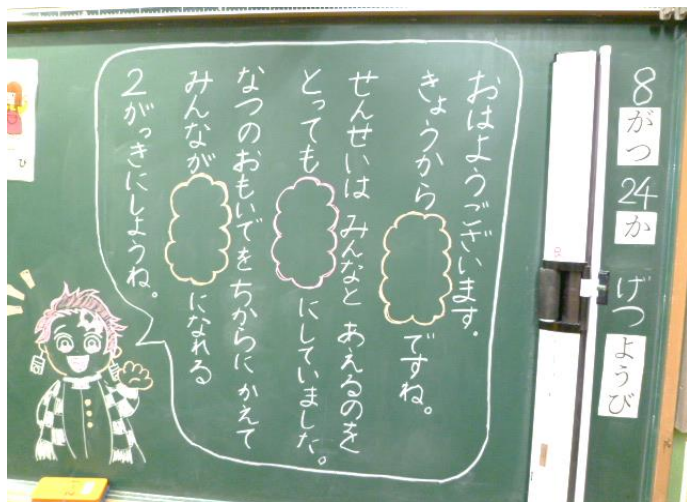 8がつ24かげつようび
おはようございます。
きょうから ですね。
せんせいは みんなと あえるのを
とっても にしていました。
なつのおもいでを ちからに かえて
みんなが になれる
2がっきにしようね。
び